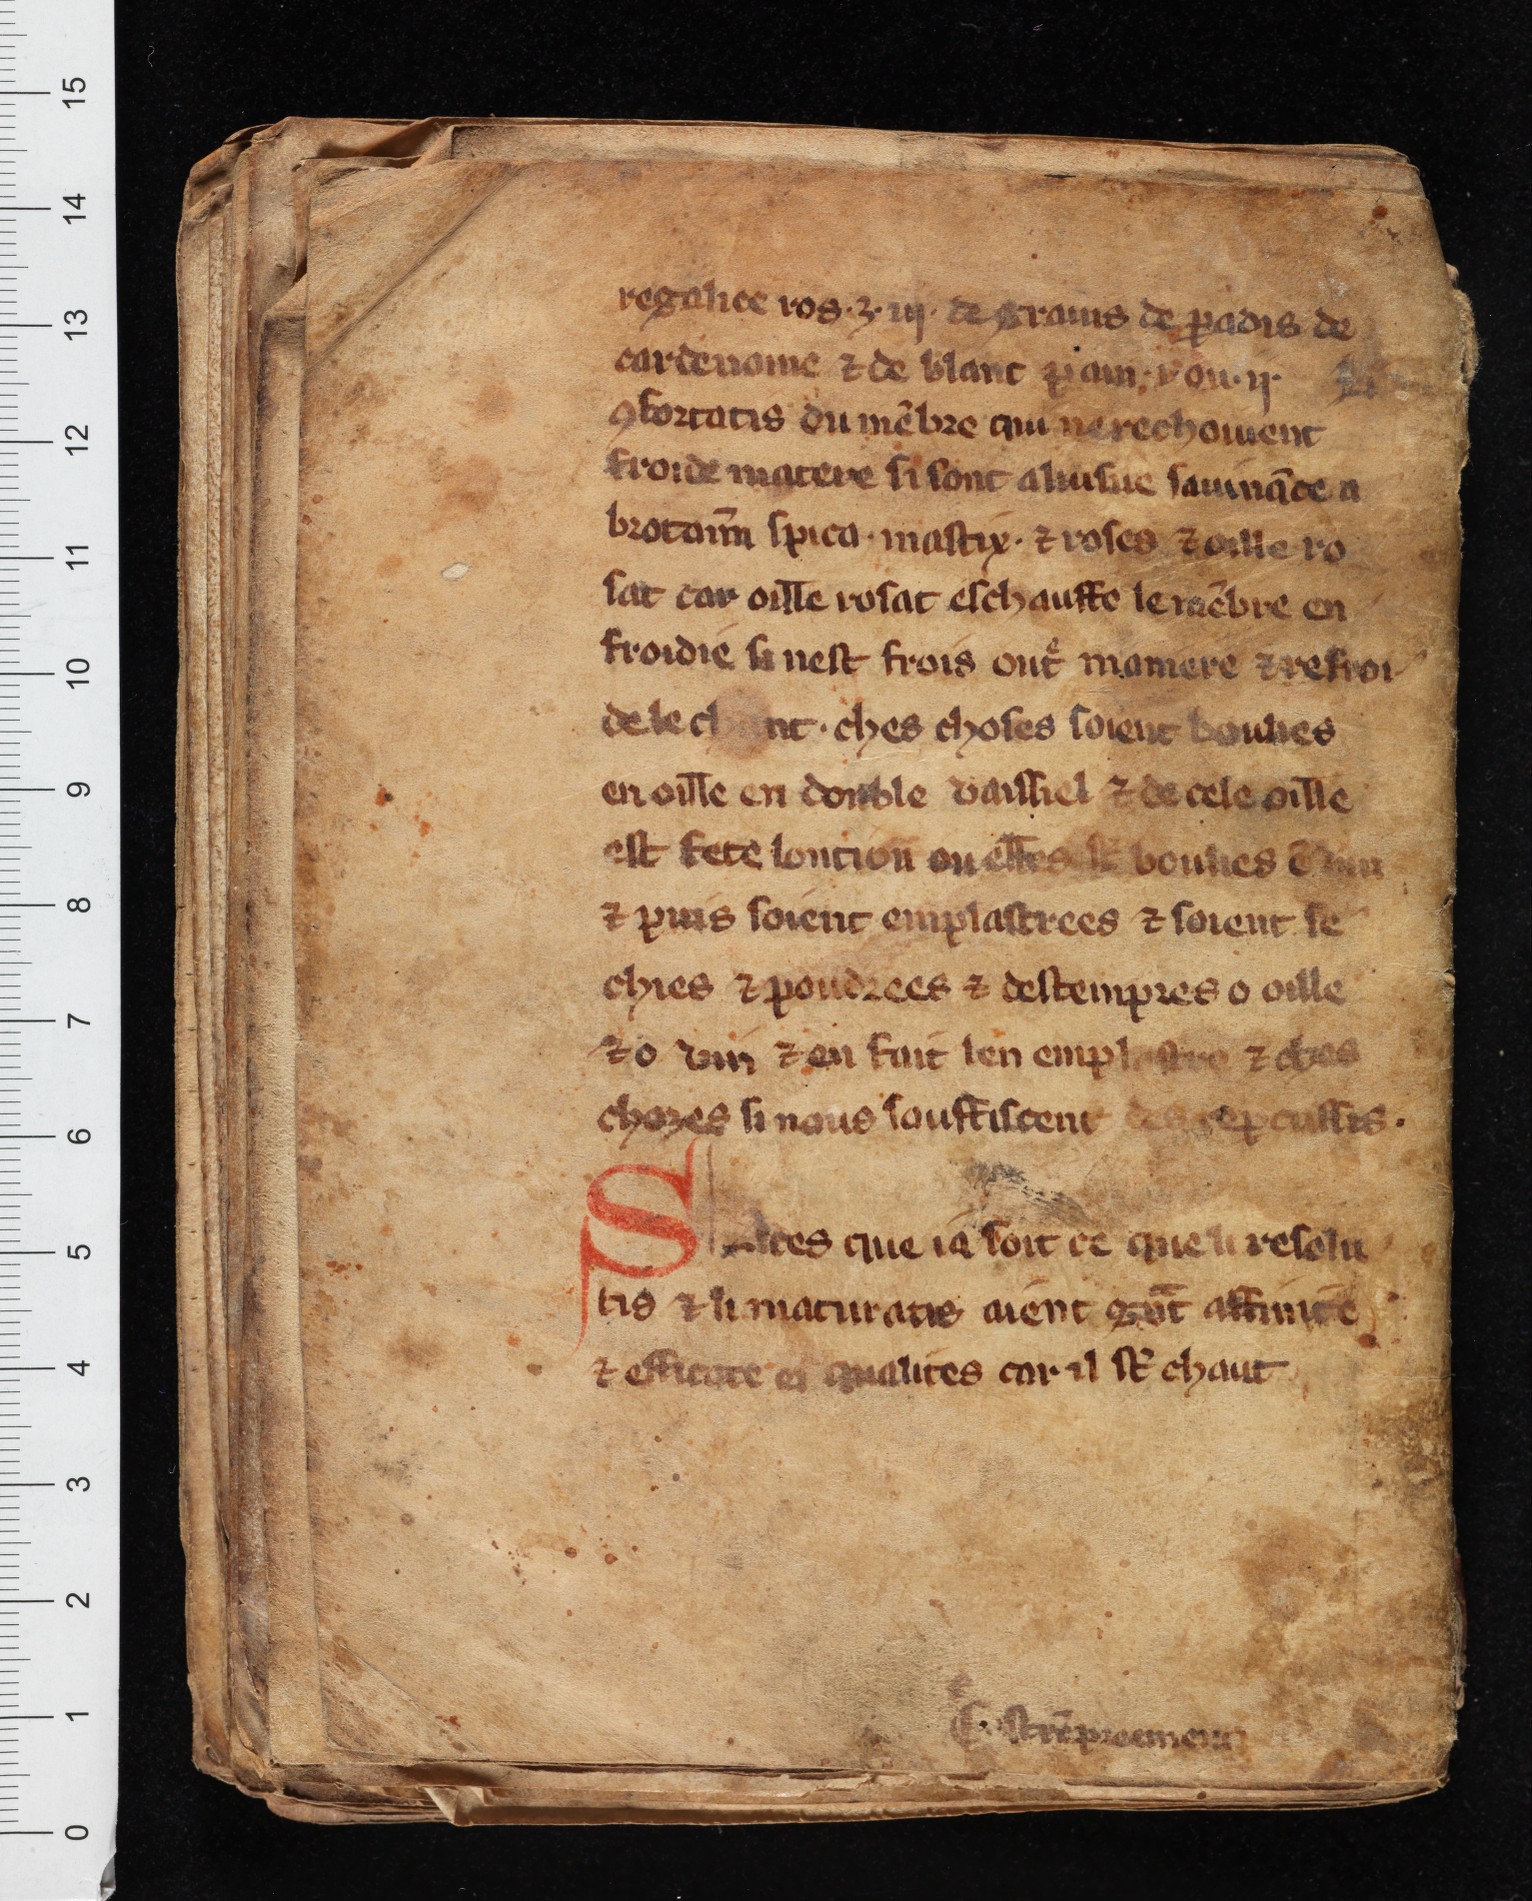 regalice ros·ʒ·iij· de grains de ꝑadis de
cardenome ⁊ de blanc pain· v ou·ij·
ꝯfortatis du mẽbre qui ne rechoiuent
froide matere si sont aluisne sauinãce a
brotanũ spica· mastix· ⁊ roses ⁊ oille ro
sat car oille rosat eschauffe le mẽbre en
froidie si nest frois out͛ maniere ⁊ refroi
de le chaut· ches choses soient boulies
en oille en double vaissiel ⁊ de cele oille
est fete lontion ou elles st̃ boulies ẽ vin
⁊ puis soient emplastrees ⁊ soient se
chies ⁊ poudrees ⁊ destempres o oille
⁊ o vin ⁊ en fait len emplastre ⁊ ches
chozes si nous souffiscent des reꝑcussis·
S que ia soit ce que li resolu
tis ⁊ li maturatis aient affinite
⁊ qualites car il st̃ chaut